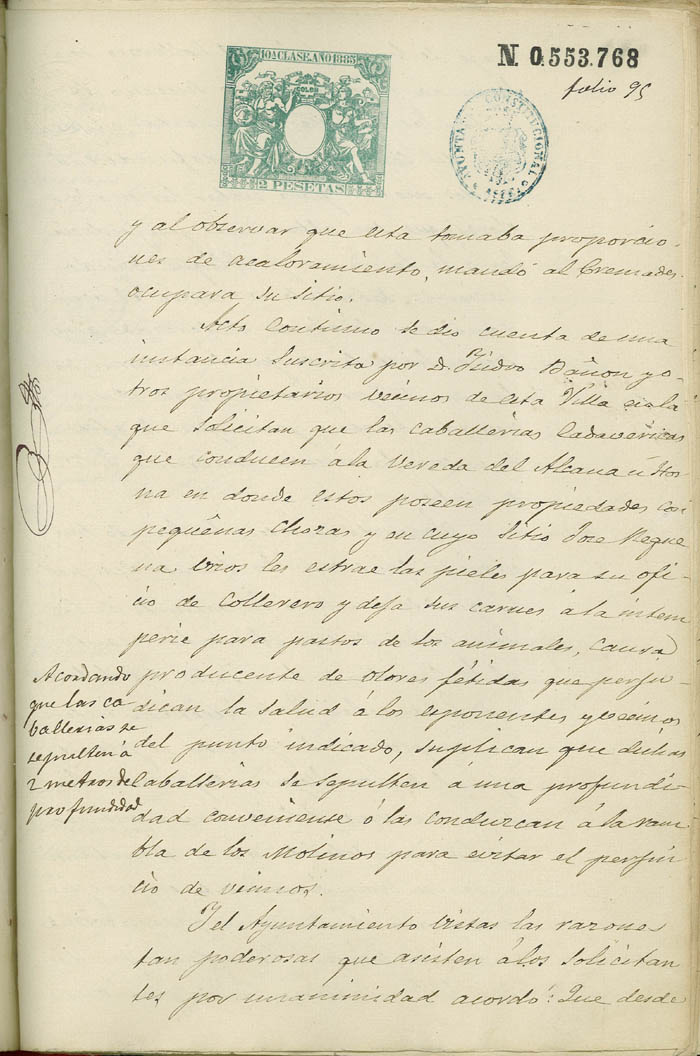 10A CLASE. AÑO 1885
2 PESETAS
N. 0.553.768
folio 95
AYUNTA CONSTITUCIONAL
y al observar que esta tomaba proporcio-
nes de acaloramiento, mandó al Cremades
ocupara su sitio.
Acto continuo se dio cuenta de una
instancia suscrita por D. Pedro Bañon y o-
tros propietarios vecinos de esta Villa en la
que solicitan que las caballerias cadavericas
que conducen á la Vereda del Alcana ú Hor
na en donde estos poseen propiedades con
pequeñas chozas y en cuyo sitio Jose Reque
na les estrae las pieles para su ofi-
cio de Collerero y deja sus carnes á la intem
perie para pastos de los animales, causa
producente de olores fétidas que perju-
dican la salud á los esponentes y vecinos
del punto indicado, suplican que dichas
caballerias se sepulten á una profundi-
dad conveniente ó las conduzcan á la ram
bla de los Molinos para evitar el perjui
cio de vecinos.
Y el Ayuntamiento vistas las razones
tan poderosas que asisten á los solicitan
tes por unanimidad acordó: Que desde
Acordando
que las ca
ballerias se
sepulten á
2 metros de
profundidad